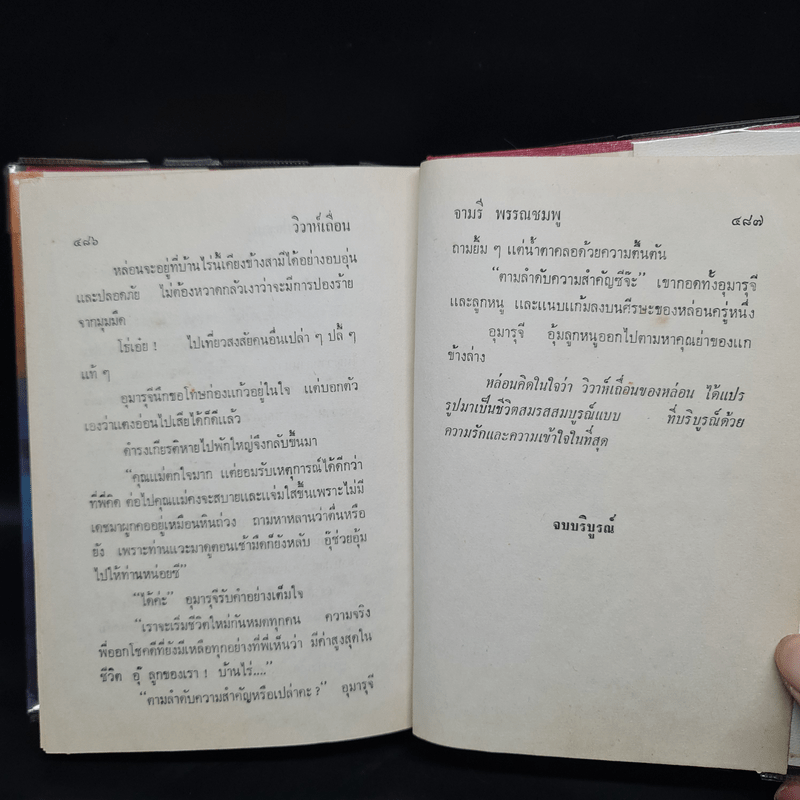 ๔๘๖
วิวาห์เถื่อน
หล่อนจะอยู่ที่บ้านไร่นี้เคียงข้างสามีได้อย่างอบอุ่น
และปลอดภัย ไม่ต้องหวาดกลัวเงาว่าจะมีการปองร้าย
จากมุมมืด
โธ่เอ๋ย ! ไปเที่ยวสงสัยคนอื่นเปล่า ๆ ปลี้ ๆ
แท้ ๆ
อุมารุจีนึกขอโทษก่องแก้วอยู่ในใจ แต่บอกตัว
เองว่าแตงอ่อนไปเสียได้ก็ดีแล้ว
ดำรงเกียรติหายไปพักใหญ่จึงกลับขึ้นมา
“คุณแม่ตกใจมาก แต่ยอมรับเหตุการณ์ได้ดีกว่า
ที่พี่คิด ต่อไปคุณแม่คงจะสบายและแจ่มใสขึ้นเพราะไม่มี
เดชมาผูกคออยู่เหมือนหินถ่วง ถามหาหลานว่าตื่นหรือ
ยัง เพราะท่านแวะมาดูตอนเช้ามืดก็ยังหลับ อุ๊ช่วยอุ้ม
ไปให้ท่านหน่อยซี”
“ได้ค่ะ” อุมารุจีรับคำอย่างเต็มใจ
“เราจะเริ่มชีวิตใหม่กันหมดทุกคน ความจริง
พี่ออกโชคดีที่ยังมีเหลือทุกอย่างที่พี่เห็นว่า มีค่าสูงสุดใน
ชีวิต อุ๊ ลูกของเรา ! บ้านไร่....”
“ตามลำดับความสำคัญหรือเปล่าคะ ?” อุมารุจี
จามรี พรรณชมพู
๔๘๗
ถามยิ้ม ๆ แต่น้ำตาคลอด้วยความตื้นตัน
“ตามลำดับความสำคัญซีจ๊ะ” เขากอดทั้งอุมารุจี
และลูกหนู และแนบแก้มลงบนศีรษะของหล่อนครู่หนึ่ง
อุมารุจี อุ้มลูกหนูออกไปตามหาคุณย่าของแก
ข้างล่าง
หล่อนคิดในใจว่า วิวาห์เถื่อนของหล่อน ได้แปร
รูปมาเป็นชีวิตสมรสสมบูรณ์แบบ ที่บริบูรณ์ด้วย
ความรักและความเข้าใจในที่สุด
จบบริบูรณ์